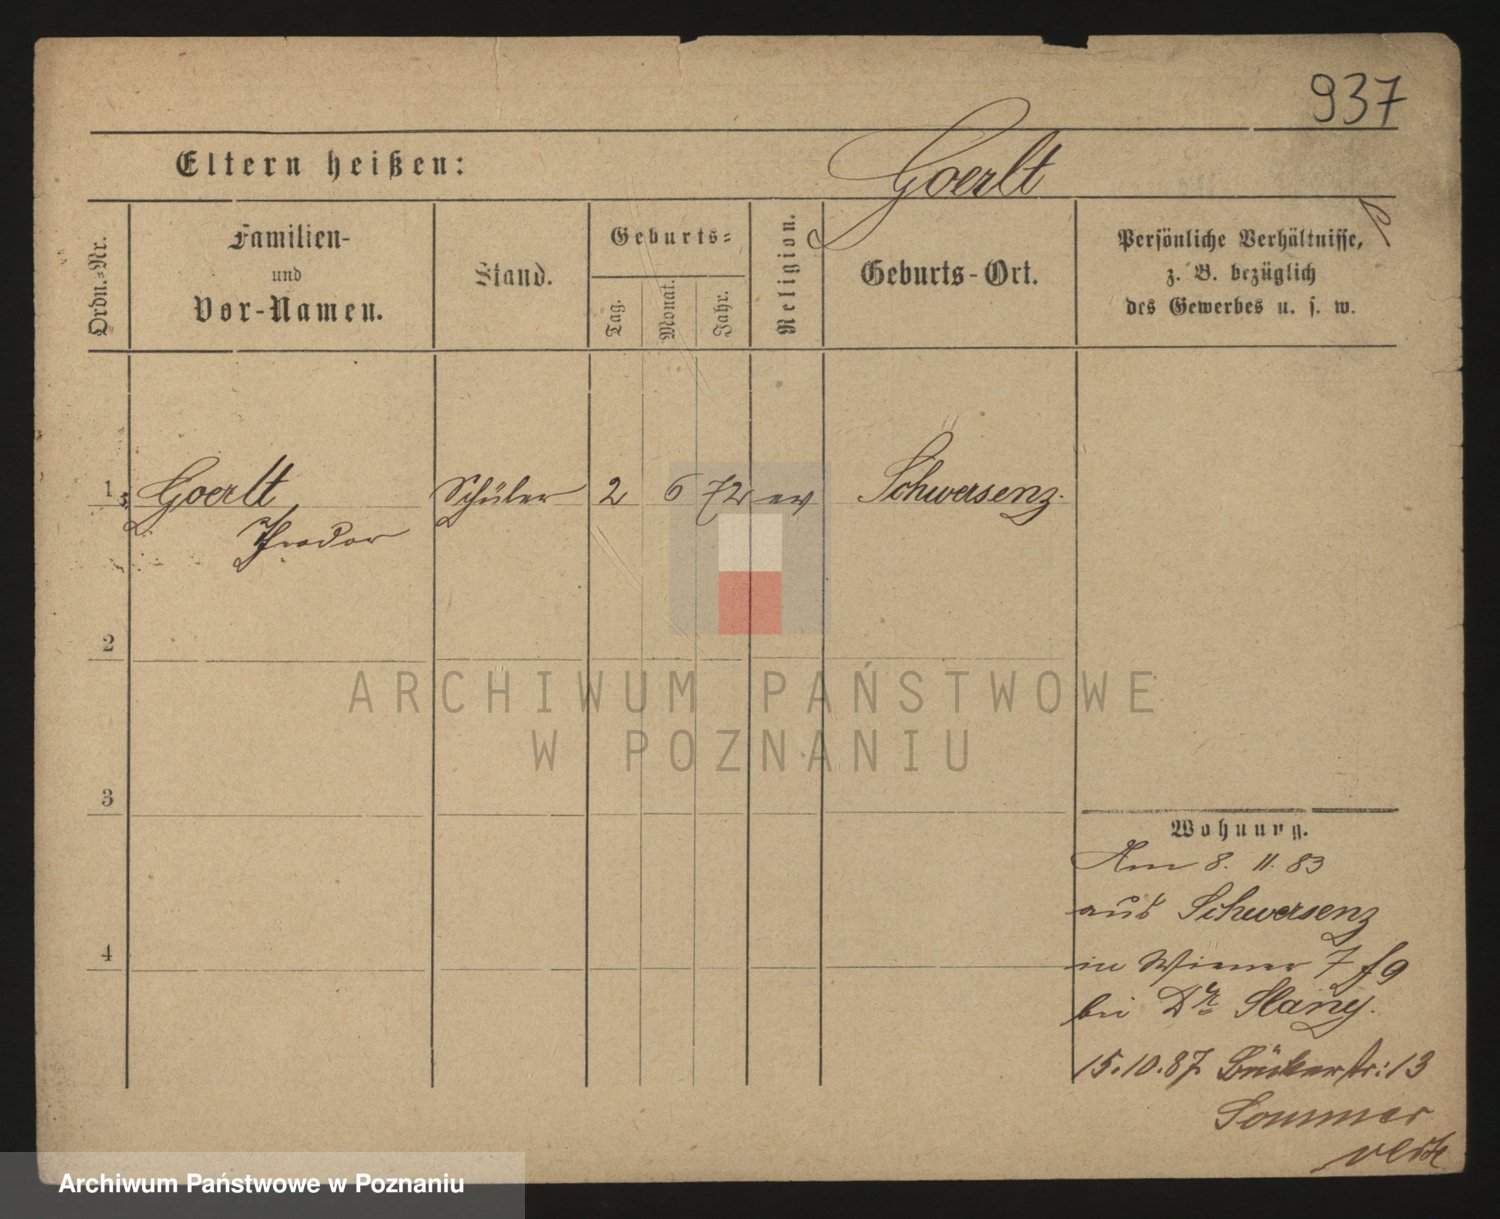 937
Eltern heißen:
Goerlt
Ordn.-Nr.
Familien-
und
Vor-Namen.
Stand.
Geburts-
Tag.
Monat.
Jahr.
Religion.
Geburts-Ort.
Persönliche Verhältnisse,
z. B. bezüglich
des Gewerbes u. s. w.
1 Goerlt Schüler 2 6 72 ev Schwersenz.
Theodor
2
ARCHIWUM PAŃSTWOWE
W POZNANIU
3
Wohnung.
Am 8. 11. 83
aus Schwersenz
in Wiener 7
bei Dr
4
15.10.87. str: 13
Sommer
Archiwum Państwowe w Poznaniu